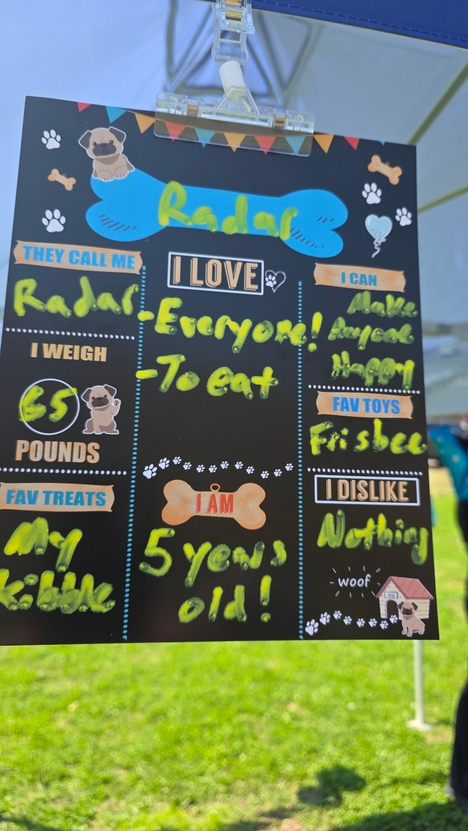 Radar
THEY CALL ME
Radar
I WEIGH
65
POUNDS
FAV TREATS
My
Kibble
I LOVE
-Everyone!
-To eat
I AM
5 years
old!
I CAN
Make
Anyone
Happy
FAV TOYS
Frisbee
I DISLIKE
Nothing
woof